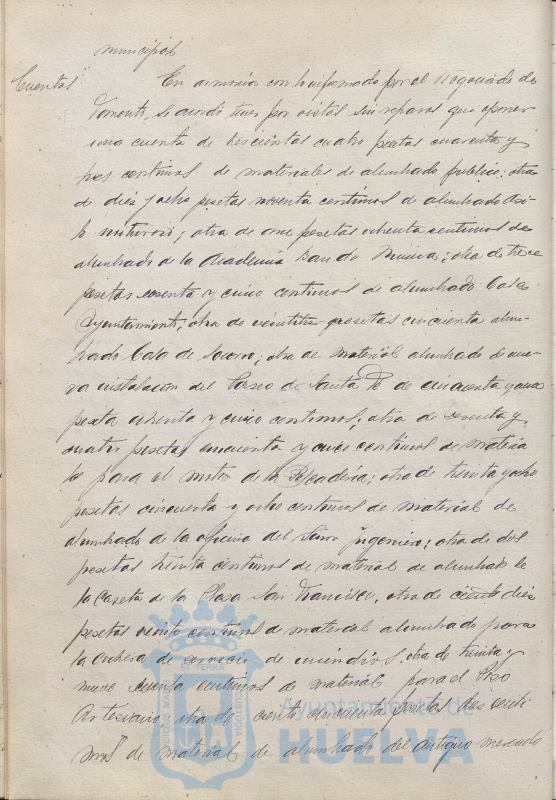 municipal
Cuentas En armonía con lo informado por el Negociado de
Fomento, se acordó tener por vistas sin reparos que oponer
una cuenta de trescientas cuatro pesetas cuarenta y
tres centimos de materiales de alumbrado publico; otra
de diez y ocho pesetas noventa centimos de alumbrado Asi-
lo nocturno; otra de once pesetas ochenta centimos de
alumbrado de la Academia Banda Musica; otra de trece
pesetas sesenta y cinco centimos de alumbrado Casa
Ayuntamiento; otra de veintitres pesetas cincuenta alum-
brado Casa de Socorro; otra de material alumbrado de nue-
va instalacion del Paseo de Santa Fé de cincuenta y una
peseta ochenta y cinco centimos; otra de sesenta y
cuatro pesetas cincuenta y cinco centimos de materia
les para el motor de la Pescadería; otra de treinta y ocho
pesetas cincuenta y ocho centimos de material de
alumbrado de la oficina del Señor Ingeniero; otra de dos
pesetas treinta centimos de material de alumbrado de
la Caseta de la Plaza San Francisco, otra de ciento diez
pesetas veinte centimos de material alumbrado para
la cochera de servicio de incendios; otra de treinta y
nueve cuenta centimos de material para el Pozo
Artesiano; otra de ciento cincuenta pesetas dos centi
mos de material de alumbrado del antiguo mercado
Ayuntamiento de
HUELVA